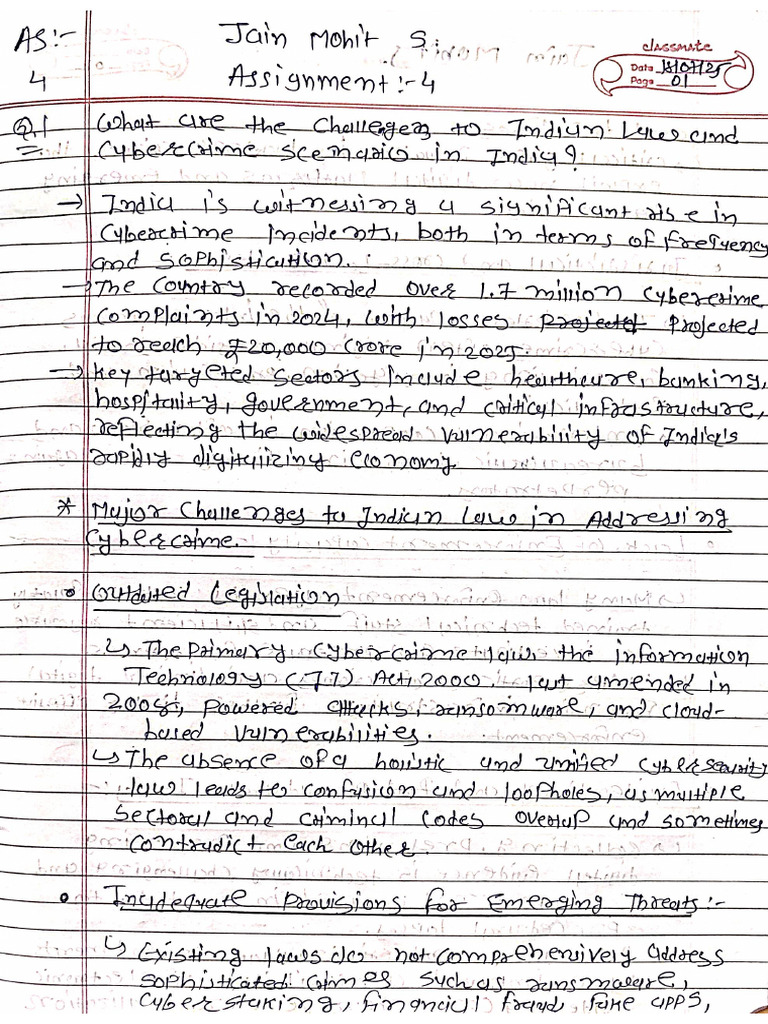 AS:- Jain Mohit S.
4 Assignment:-4
classmate
Date 18/07/25
Page 01
Q.1 What are the Challenges to Indian Law and
Cybercrime Scenario in India?
→ India is witnessing a significant rise in
Cybercrime Incidents, both in terms of frequency
and Sophistication.
→ The Country recorded over 1.7 million Cybercrime
Complaints in 2024, with losses Projected Projected
to reach ₹20,000 Crore in 2025.
→ Key targeted Sectors include healthcare, banking,
hospitality, government, and critical infrastructure,
reflecting the widespread vulnerability of India's
rapidly digitalizing economy.
* Major Challenges to Indian Law in Addressing
Cybercrime.
• Outdated Legislation
↳ The Primary Cybercrime law, the information
Technology (IT) Act, 2000, last amended in
2008, Powered attacks, ransomware, and cloud-
based Vulnerabilities.
↳ The absence of a holistic and unified Cybersecurity
law leads to confusion and loopholes, as multiple
Sectoral and criminal codes overlap and sometimes
contradict each other.
• Inadequate Provisions for Emerging Threats:-
↳ Existing laws do not comprehensively address
sophisticated crimes such as ransomware,
cyber staking, financial fraud, fake apps,